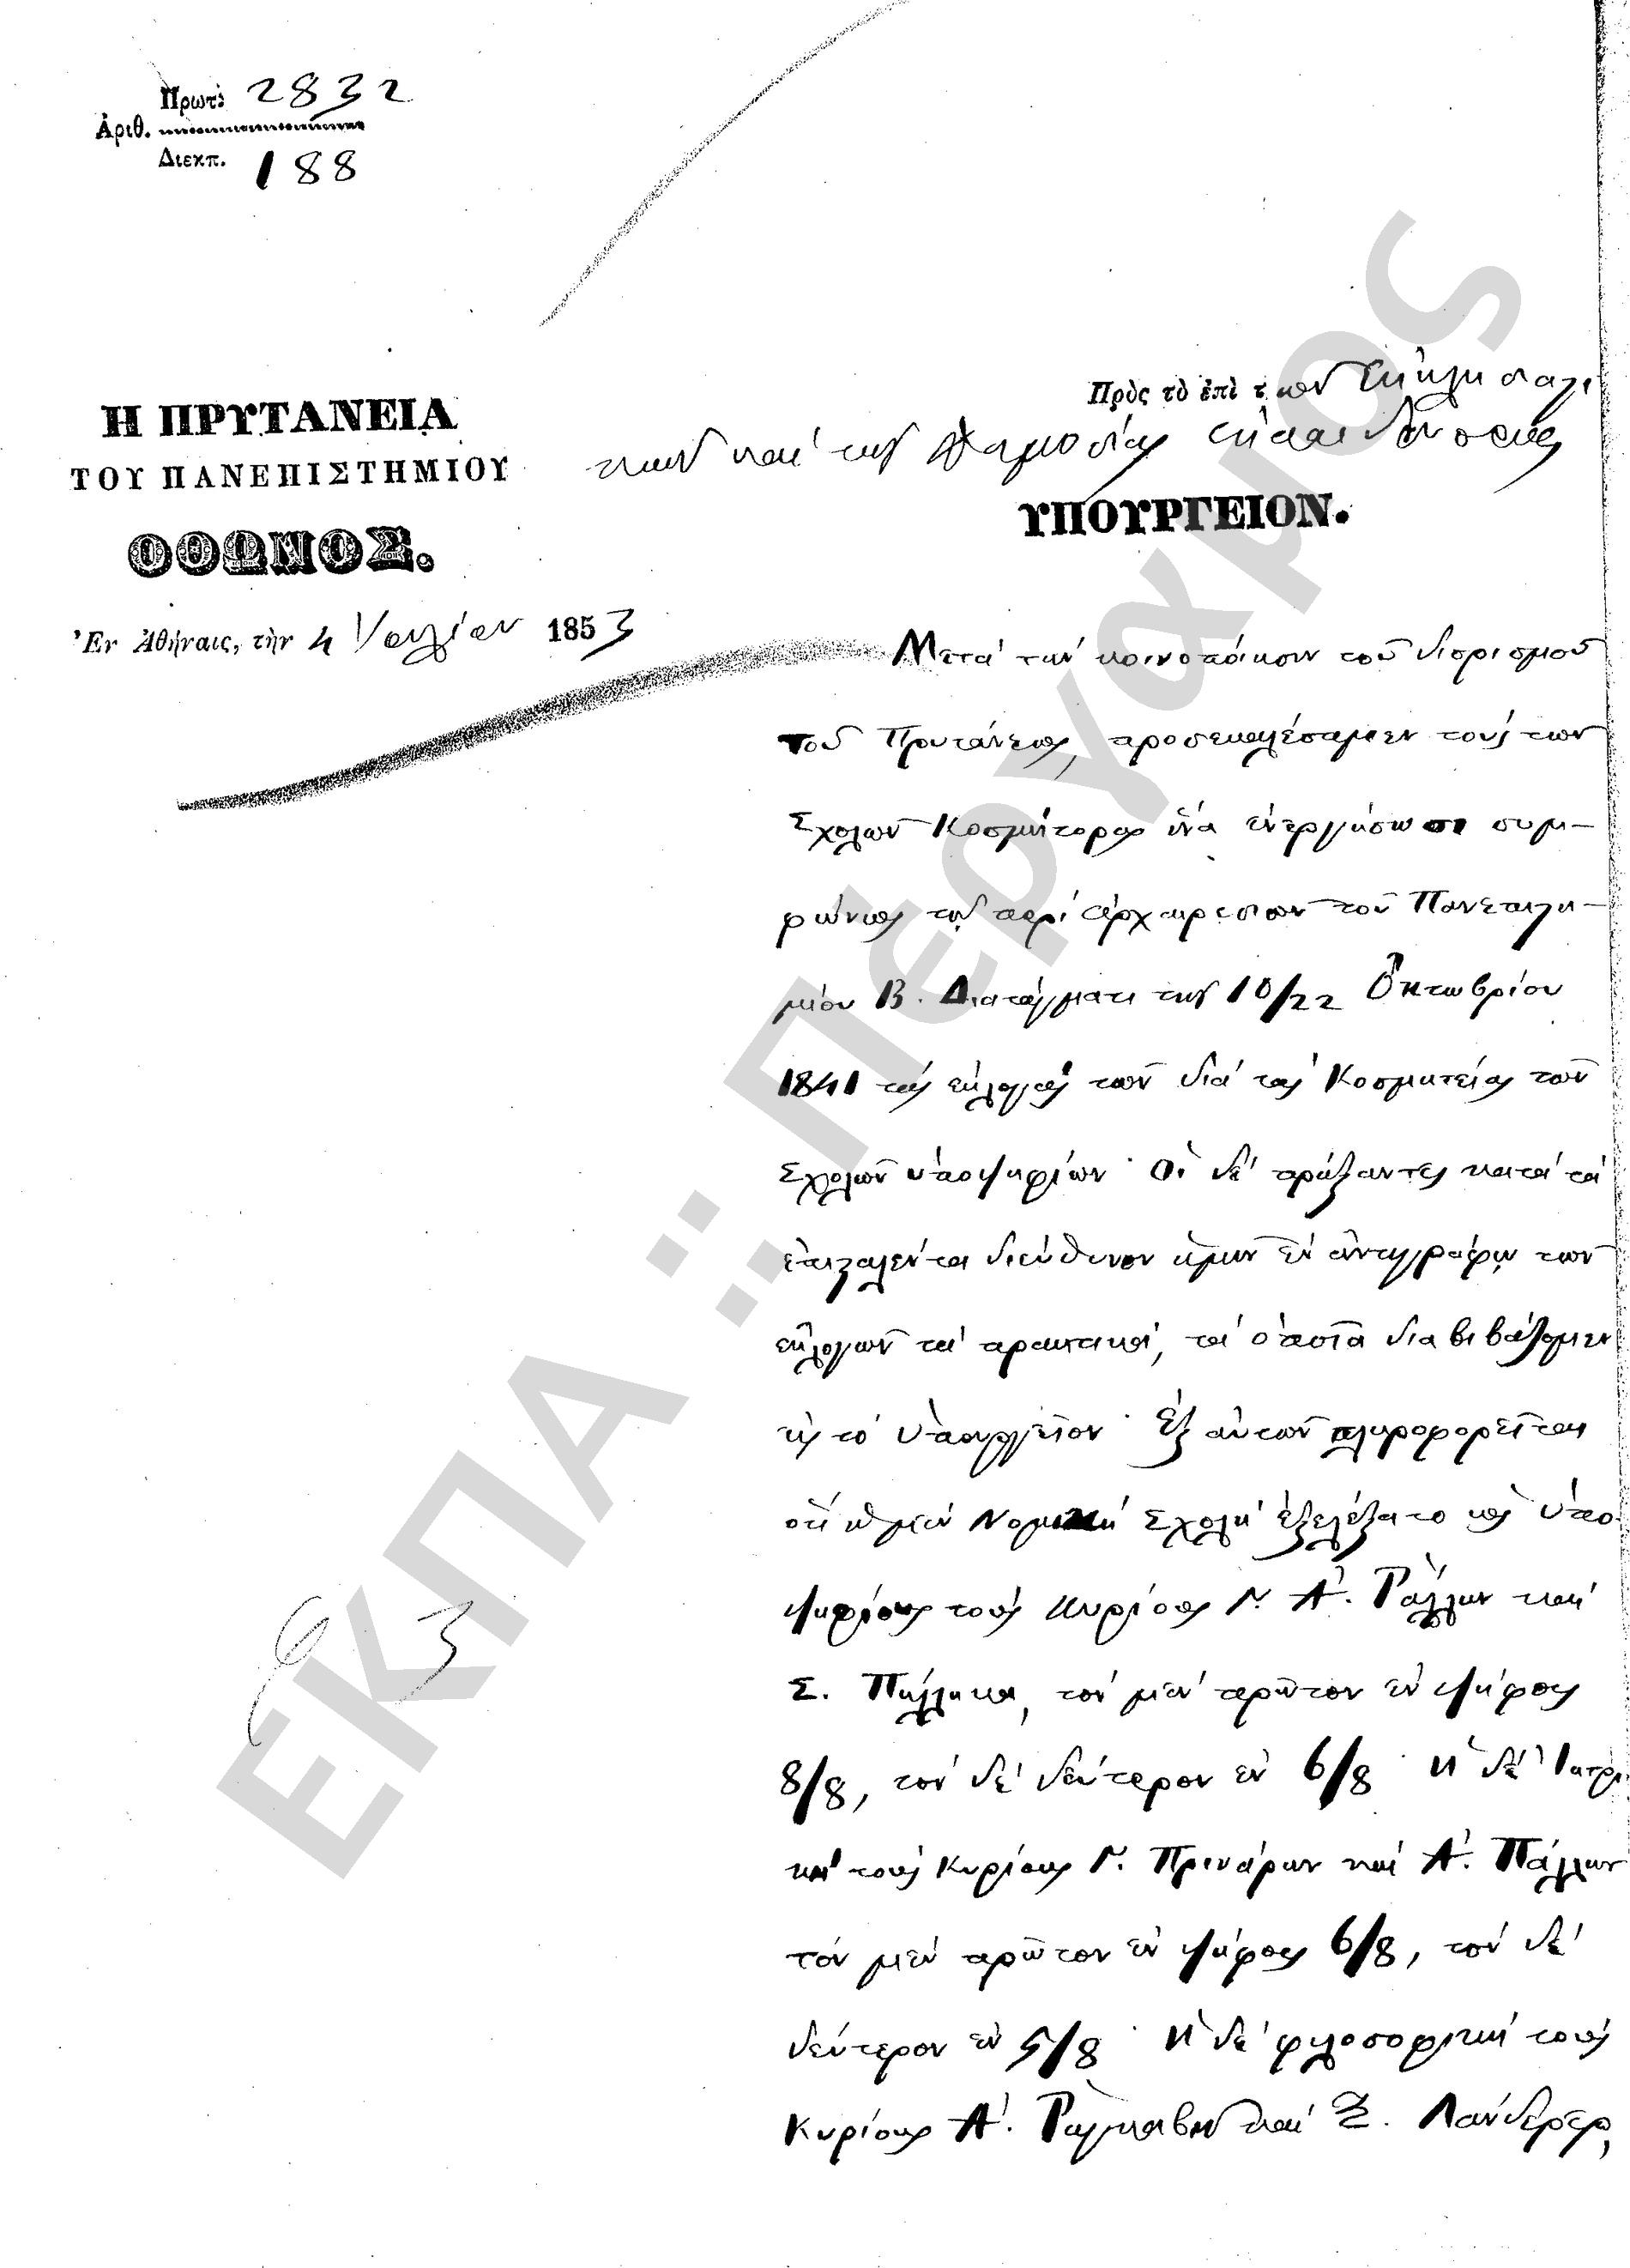 Πρωτ: 2832
Ἀριθ.
Διεκπ. 188
Η ΠΡΥΤΑΝΕΙΑ
ΤΟΥ ΠΑΝΕΠΙΣΤΗΜΙΟΥ
ΟΘΩΝΟΣ.
Ἐν Ἀθήναις, τὴν 4 Ἰουλίου 1853
Πρὸς τὸ ἐπὶ τῶν Ἐκκλησιαστι
κῶν καὶ τῆς Δημοσίας Ἐκπαιδεύσεως
ΥΠΟΥΡΓΕΙΟΝ.
Μετὰ τὴν κοινοποίησιν τοῦ διορισμοῦ
τοῦ Πρυτάνεως, προσεκαλέσαμεν τοὺς τῶν
Σχολῶν Κοσμήτορας ἵνα ἐνεργήσωσι συμ-
φώνως τῷ περὶ ἀρχαιρεσιῶν τοῦ Πανεπιστη-
μίου Β. Διατάγματι τῆς 10/22 Ὀκτωβρίου
1841 τὰς ἐκλογὰς τῶν διὰ τὰς Κοσμητείας τῶν
Σχολῶν ὑποψηφίων· Οἱ δὲ πράξαντες κατὰ τὰ
ἐπισταλέντα διεύθυνον ἡμῖν ἐν ἀντιγράφῳ τῶν
ἐκλογῶν τὰ πρακτικά, τὰ ὁποῖα διαβιβάζομεν
εἰς τὸ Ὑπουργεῖον· Ἐξ αὐτῶν πληροφορεῖται
ὅτι ἡ μὲν Νομικὴ Σχολὴ ἐξελέξατο ὡς ὑπο
ψηφίους τοὺς Κυρίους Γ. Α. Ῥάλλην καὶ
Σ. Πήλλικα, τὸν μὲν πρῶτον ἐν ψήφοις
8/8, τὸν δὲ δεύτερον ἐν 6/8· ἡ δὲ Ἰατρι
κὴ τοὺς Κυρίους Γ. Πρινάρην καὶ Α. Πάλλην
τὸν μὲν πρῶτον ἐν ψήφοις 6/8, τὸν δὲ
δεύτερον ἐν 5/8· ἡ δὲ φιλοσοφικὴ τοὺς
Κυρίους Α. Ῥαγκαβῆν καὶ Ξ. Λάνδερερ,
ΕΚΠΑ :: Πέργαμος